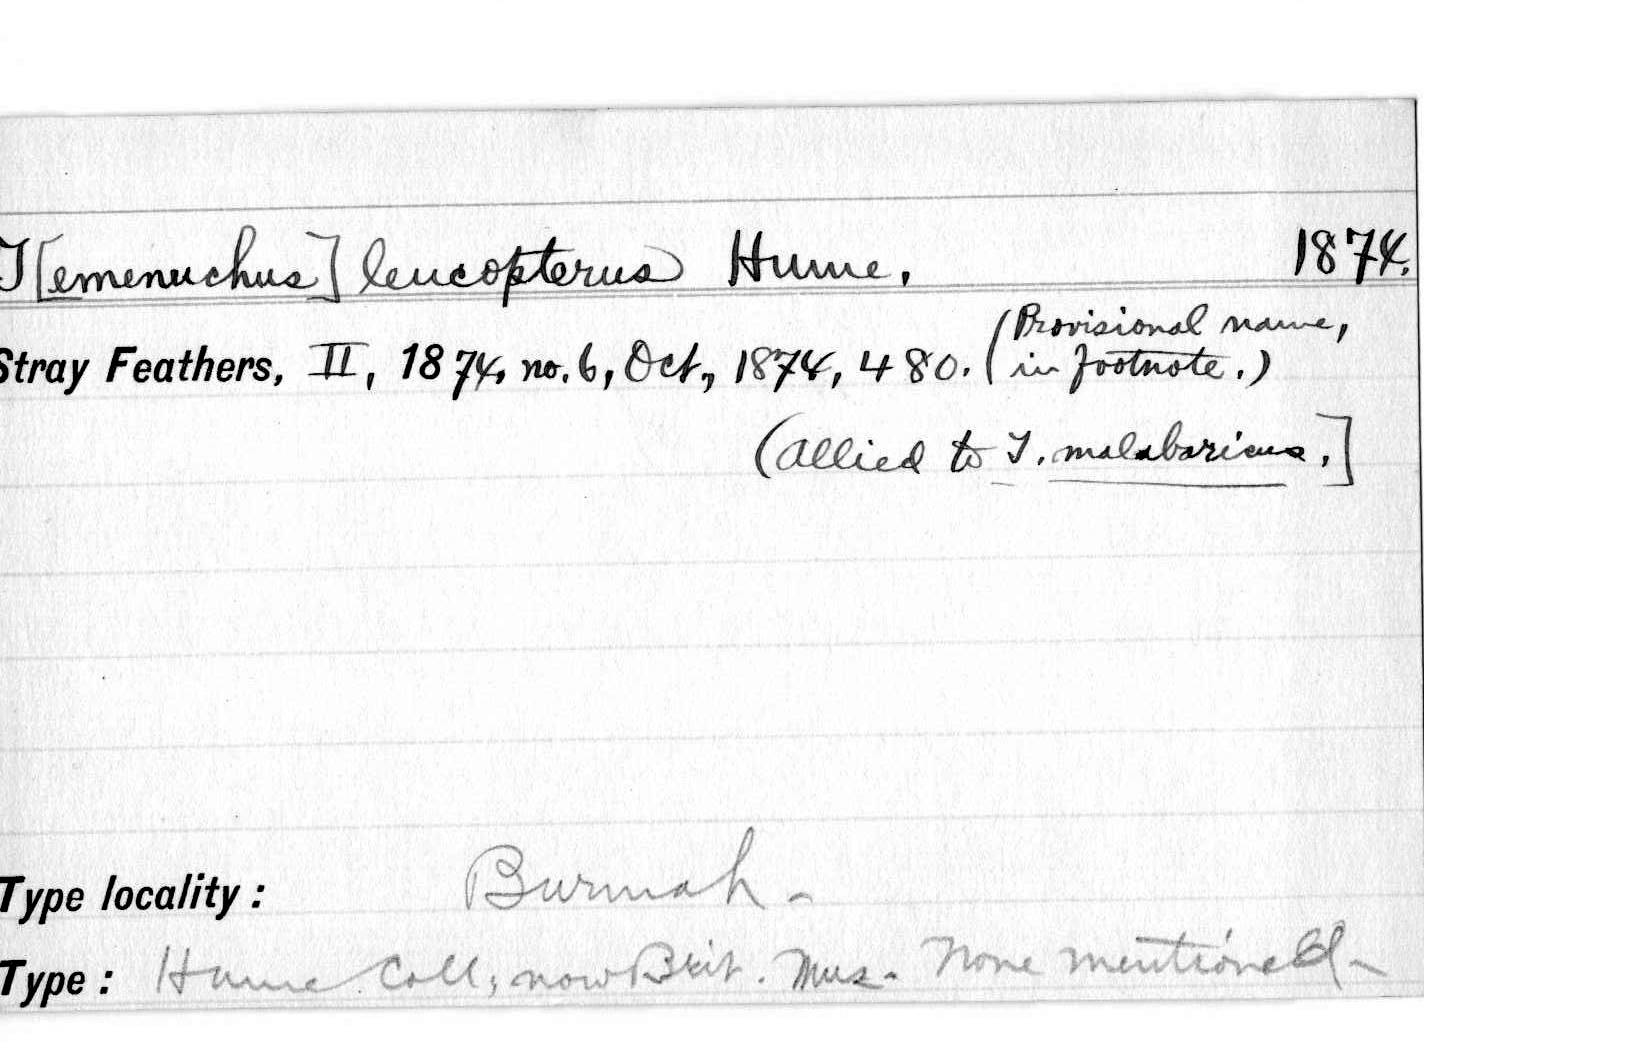 T[emenuchus] leucopterus Hume. 1874.
Stray Feathers, II, 1874, no. 6, Oct., 1874, 480. (Provisional name,
in footnote.)
(Allied to T. malabaricus.]
Type locality: Burmah -
Type: Hume Coll; now Brit. Mus. None mentioned -